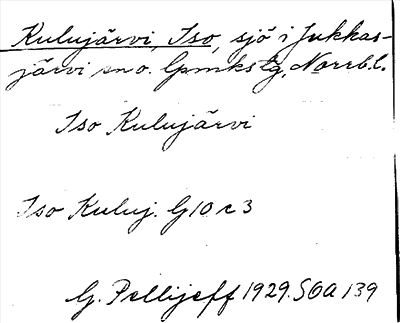 Kulujärvi, Iso, sjö i Jukkas-
järvi sn o. lpmkstg, Norrb.l.
Iso Kulujärvi
Iso Kuluj. G10 r 3
G. Pellijeff 1929. SOA 139